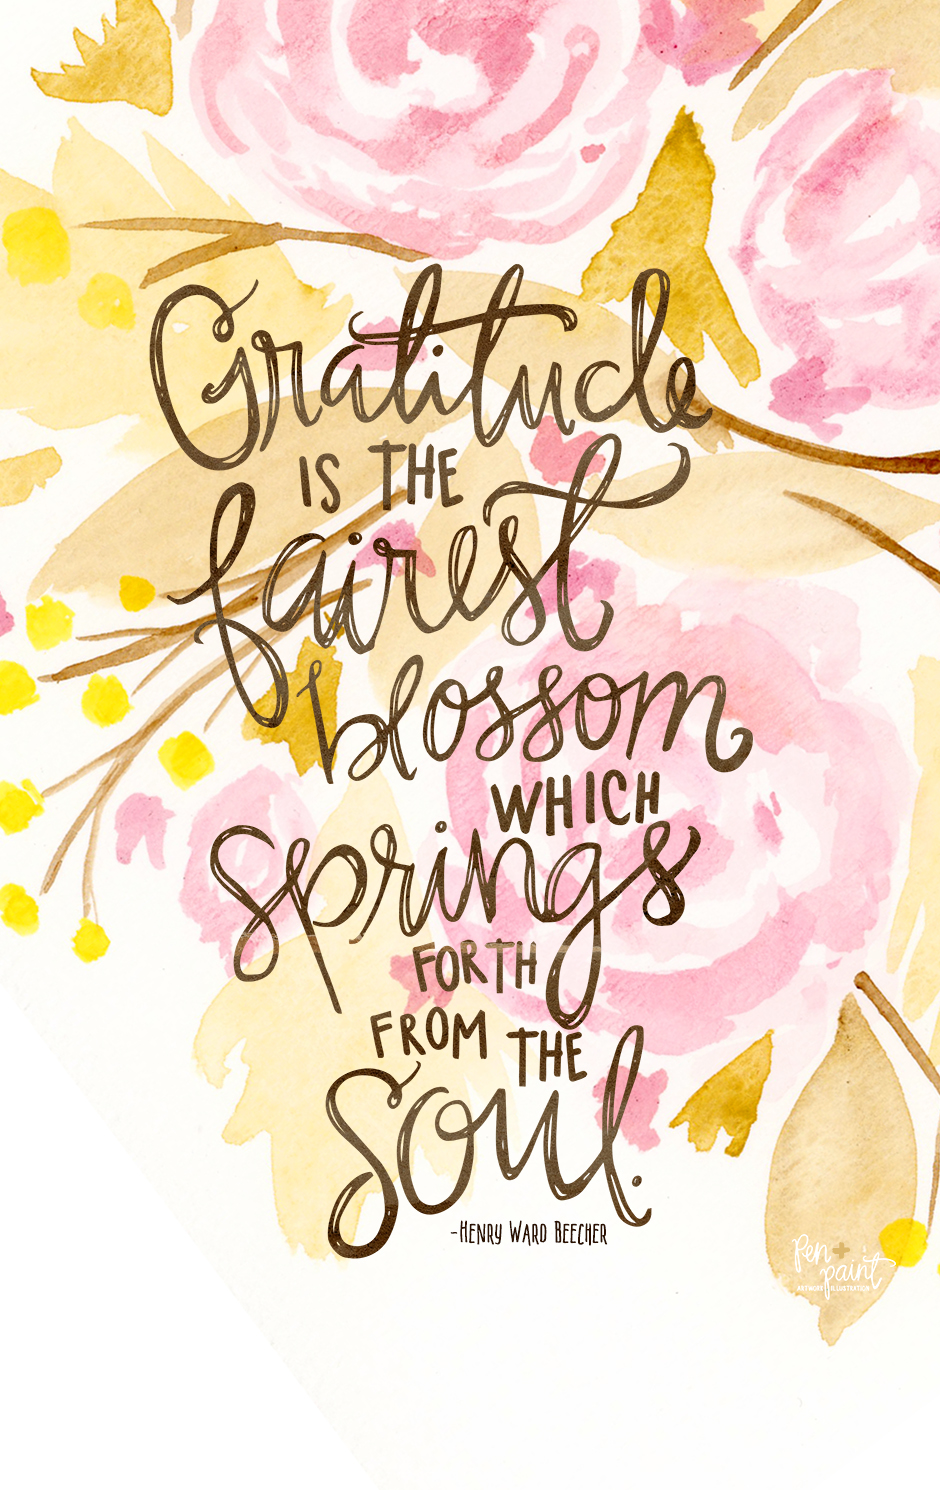 Gratitude
IS THE
fairest
blossom
WHICH
springs
FORTH
FROM THE
Soul.
-HENRY WARD BEECHER
Pen +
paint
ARTWORK & ILLUSTRATION